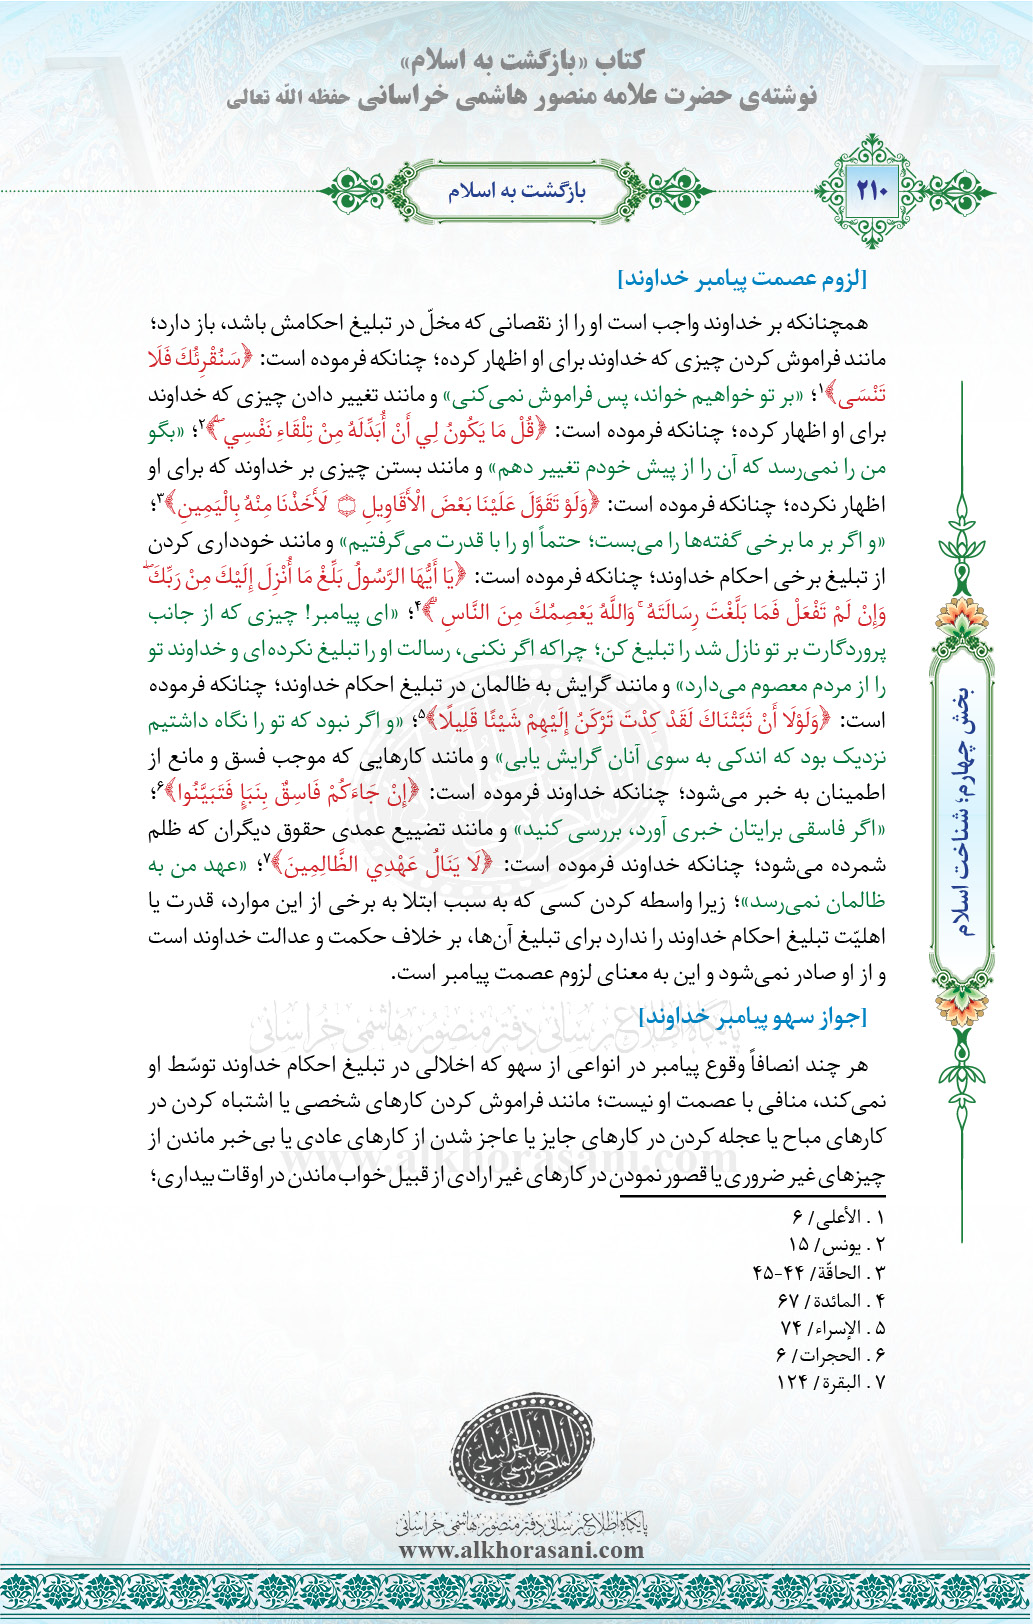 کتاب «بازگشت به اسلام»
نوشته‌ی حضرت علامه منصور هاشمی خراسانی حفظه الله تعالی
۲۱۰
بازگشت به اسلام
[لزوم عصمت پیامبر خداوند]
همچنانکه بر خداوند واجب است او را از نقصانی که مخلّ در تبلیغ احکامش باشد، باز دارد؛
مانند فراموش کردن چیزی که خداوند برای او اظهار کرده؛ چنانکه فرموده است: ﴿سَنُقْرِئُكَ فَلَا
تَنْسَى﴾۱؛ «بر تو خواهیم خواند، پس فراموش نمی‌کنی» و مانند تغییر دادن چیزی که خداوند
برای او اظهار کرده؛ چنانکه فرموده است: ﴿قُلْ مَا يَكُونُ لِي أَنْ أُبَدِّلَهُ مِنْ تِلْقَاءِ نَفْسِي ۖ﴾۲؛ «بگو
من را نمی‌رسد که آن را از پیش خودم تغییر دهم» و مانند بستن چیزی بر خداوند که برای او
اظهار نکرده؛ چنانکه فرموده است: ﴿وَلَوْ تَقَوَّلَ عَلَيْنَا بَعْضَ الْأَقَاوِيلِ ۝ لَأَخَذْنَا مِنْهُ بِالْيَمِينِ﴾۳؛
«و اگر بر ما برخی گفته‌ها را می‌بست؛ حتماً او را با قدرت می‌گرفتیم» و مانند خودداری کردن
از تبلیغ برخی احکام خداوند؛ چنانکه فرموده است: ﴿يَا أَيُّهَا الرَّسُولُ بَلِّغْ مَا أُنْزِلَ إِلَيْكَ مِنْ رَبِّكَ ۖ
وَإِنْ لَمْ تَفْعَلْ فَمَا بَلَّغْتَ رِسَالَتَهُ ۚ وَاللَّهُ يَعْصِمُكَ مِنَ النَّاسِ ۗ﴾۴؛ «ای پیامبر! چیزی که از جانب
پروردگارت بر تو نازل شد را تبلیغ کن؛ چراکه اگر نکنی، رسالت او را تبلیغ نکرده‌ای و خداوند تو
را از مردم معصوم می‌دارد» و مانند گرایش به ظالمان در تبلیغ احکام خداوند؛ چنانکه فرموده
است: ﴿وَلَوْلَا أَنْ ثَبَّتْنَاكَ لَقَدْ كِدْتَ تَرْكَنُ إِلَيْهِمْ شَيْئًا قَلِيلًا﴾۵؛ «و اگر نبود که تو را نگاه داشتیم
نزدیک بود که اندکی به سوی آنان گرایش یابی» و مانند کارهایی که موجب فسق و مانع از
اطمینان به خبر می‌شود؛ چنانکه خداوند فرموده است: ﴿إِنْ جَاءَكُمْ فَاسِقٌ بِنَبَإٍ فَتَبَيَّنُوا﴾۶؛
«اگر فاسقی برایتان خبری آورد، بررسی کنید» و مانند تضییع عمدی حقوق دیگران که ظلم
شمرده می‌شود؛ چنانکه خداوند فرموده است: ﴿لَا يَنَالُ عَهْدِي الظَّالِمِينَ﴾۷؛ «عهد من به
ظالمان نمی‌رسد»؛ زیرا واسطه کردن کسی که به سبب ابتلا به برخی از این موارد، قدرت یا
اهلیّت تبلیغ احکام خداوند را ندارد برای تبلیغ آن‌ها، بر خلاف حکمت و عدالت خداوند است
و از او صادر نمی‌شود و این به معنای لزوم عصمت پیامبر است.
[جواز سهو پیامبر خداوند]
هر چند انصافاً وقوع پیامبر در انواعی از سهو که اخلالی در تبلیغ احکام خداوند توسّط او
نمی‌کند، منافی با عصمت او نیست؛ مانند فراموش کردن کارهای شخصی یا اشتباه کردن در
کارهای مباح یا عجله کردن در کارهای جایز یا عاجز شدن از کارهای عادی یا بی‌خبر ماندن از
چیزهای غیر ضروری یا قصور نمودن در کارهای غیر ارادی از قبیل خواب ماندن در اوقات بیداری؛
۱ . الأعلی/ ۶
۲ . یونس/ ۱۵
۳ . الحاقّة/ ۴۴-۴۵
۴ . المائدة/ ۶۷
۵ . الإسراء/ ۷۴
۶ . الحجرات/ ۶
۷ . البقرة/ ۱۲۴
بخش چهارم؛ شناخت اسلام
پایگاه اطلاع رسانی دفتر منصور هاشمی خراسانی
www.alkhorasani.com
المنصور الهاشمي الخراساني
پایگاه اطلاع رسانی دفتر منصور هاشمی خراسانی
www.alkhorasani.com